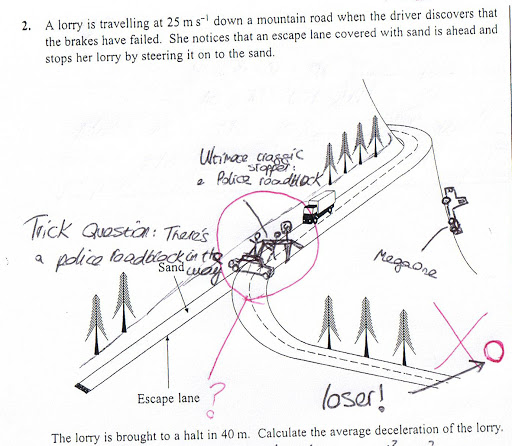 2. A lorry is travelling at 25 m s⁻¹ down a mountain road when the driver discovers that
the brakes have failed. She notices that an escape lane covered with sand is ahead and
stops her lorry by steering it on to the sand.
Ultimate traffic
stopper:
a Police roadblock
Trick Question: There's
a police roadblock in the
way
Sand
Megaone
Escape lane
?
loser!
X 0
The lorry is brought to a halt in 40 m. Calculate the average deceleration of the lorry.